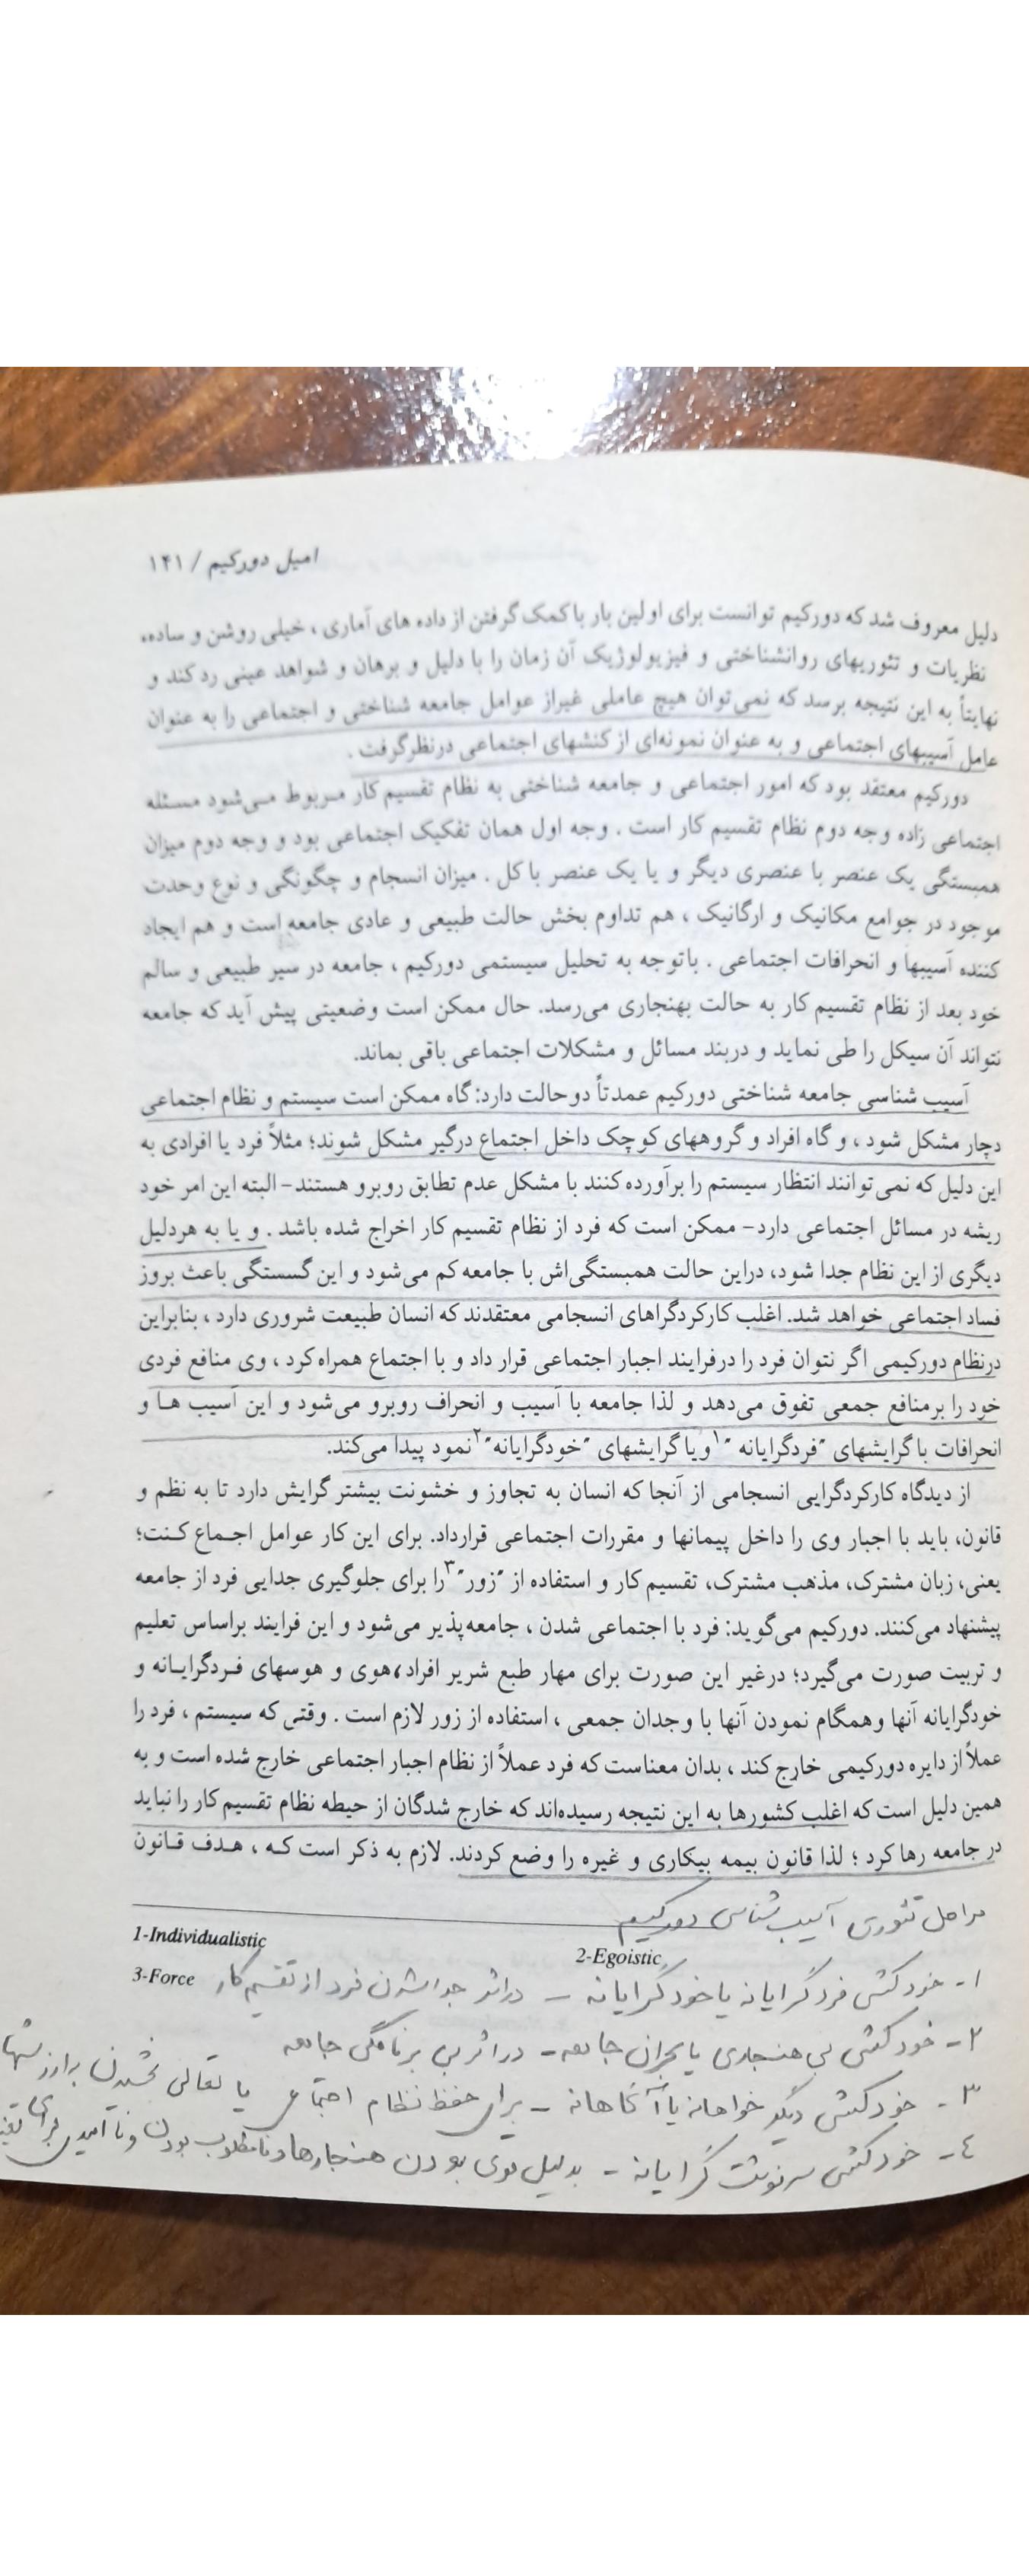 امیل دورکیم / ۱۴۱
دلیل معروف شد که دورکیم توانست برای اولین بار با کمک گرفتن از داده های آماری ، خیلی روشن و ساده،
نظریات و تئوریهای روانشناختی و فیزیولوژیک آن زمان را با دلیل و برهان و شواهد عینی رد کند و
نهایتاً به این نتیجه برسد که نمی‌توان هیچ عاملی غیراز عوامل جامعه شناختی و اجتماعی را به عنوان
عامل آسیبهای اجتماعی و به عنوان نمونه‌ای از کنشهای اجتماعی درنظرگرفت .
دورکیم معتقد بود که امور اجتماعی و جامعه شناختی به نظام تقسیم کار مربوط می‌شود مسئله
اجتماعی زاده وجه دوم نظام تقسیم کار است . وجه اول همان تفکیک اجتماعی بود و وجه دوم میزان
همبستگی یک عنصر با عنصری دیگر و یا یک عنصر با کل . میزان انسجام و چگونگی و نوع وحدت
موجود در جوامع مکانیک و ارگانیک ، هم تداوم بخش حالت طبیعی و عادی جامعه است و هم ایجاد
کننده آسیبها و انحرافات اجتماعی . باتوجه به تحلیل سیستمی دورکیم ، جامعه در سیر طبیعی و سالم
خود بعد از نظام تقسیم کار به حالت بهنجاری می‌رسد. حال ممکن است وضعیتی پیش آید که جامعه
نتواند آن سیکل را طی نماید و دربند مسائل و مشکلات اجتماعی باقی بماند.
آسیب شناسی جامعه شناختی دورکیم عمدتاً دوحالت دارد: گاه ممکن است سیستم و نظام اجتماعی
دچار مشکل شود ، و گاه افراد و گروههای کوچک داخل اجتماع درگیر مشکل شوند؛ مثلاً فرد یا افرادی به
این دلیل که نمی‌توانند انتظار سیستم را برآورده کنند با مشکل عدم تطابق روبرو هستند - البته این امر خود
ریشه در مسائل اجتماعی دارد - ممکن است که فرد از نظام تقسیم کار اخراج شده باشد . و یا به هردلیل
دیگری از این نظام جدا شود، دراین حالت همبستگی‌اش با جامعه کم می‌شود و این گسستگی باعث بروز
فساد اجتماعی خواهد شد. اغلب کارکردگراهای انسجامی معتقدند که انسان طبیعت شروری دارد ، بنابراین
درنظام دورکیمی اگر نتوان فرد را درفرایند اجبار اجتماعی قرار داد و با اجتماع همراه کرد ، وی منافع فردی
خود را برمنافع جمعی تفوق می‌دهد و لذا جامعه با آسیب و انحراف روبرو می‌شود و این آسیب هـا و
انحرافات با گرایشهای "فردگرایانه "۱ و یا گرایشهای "خودگرایانه"۲ نمود پیدا می‌کند.
از دیدگاه کارکردگرایی انسجامی از آنجا که انسان به تجاوز و خشونت بیشتر گرایش دارد تا به نظم و
قانون، باید با اجبار وی را داخل پیمانها و مقررات اجتماعی قرارداد. برای این کار عوامل اجـماع کـنت؛
یعنی، زبان مشترک، مذهب مشترک، تقسیم کار و استفاده از "زور"۳ را برای جلوگیری جدایی فرد از جامعه
پیشنهاد می‌کنند. دورکیم می‌گوید: فرد با اجتماعی شدن ، جامعه‌پذیر می‌شود و این فرایند براساس تعلیم
و تربیت صورت می‌گیرد؛ درغیر این صورت برای مهار طبع شریر افراد، هوی و هوسهای فـردگرایـانه و
خودگرایانه آنها وهمگام نمودن آنها با وجدان جمعی ، استفاده از زور لازم است . وقتی که سیستم ، فرد را
عملاً از دایره دورکیمی خارج کند ، بدان معناست که فرد عملاً از نظام اجبار اجتماعی خارج شده است و به
همین دلیل است که اغلب کشورها به این نتیجه رسیده‌اند که خارج شدگان از حیطه نظام تقسیم کار را نباید
در جامعه رها کرد ؛ لذا قانون بیمه بیکاری و غیره را وضع کردند. لازم به ذکر است کـه ، هـدف قـانون
مراحل تئوری آسیب شناسی دورکیم
1-Individualistic
2-Egoistic
3-Force
۱- خودکشی فردگرایانه یا خودگرایانه - دراثر جدا شدن فرد از تقسیم کار
۲- خودکشی بی هنجاری یا بحران جامعه - دراثر بی برنامگی جامعه
۳- خودکشی دیگر خواهانه یا آگاهانه - برای حفظ نظام اجتماعی یا تعالی بخشیدن به ارزشها
۴- خودکشی سرنوشت گرایانه - بدلیل قوی بودن هنجارها و نامطلوب بودن و ناامیدی برای